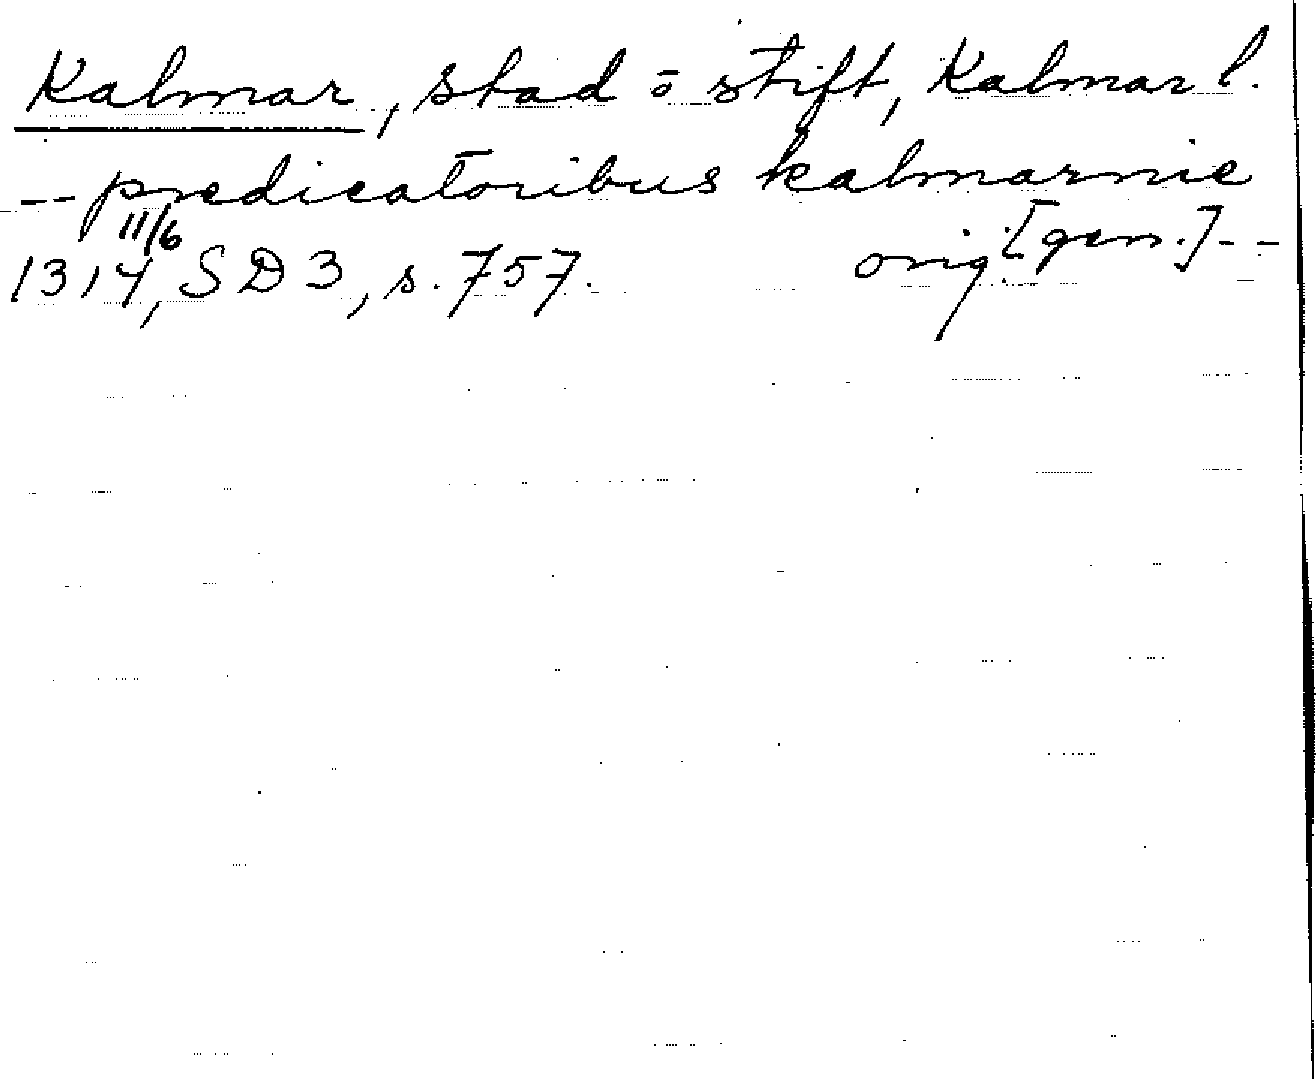 Kalmar, stad o stift, Kalmar l.
-- predicatoribus kalmarnie
[gen.] --
1314 11/6, SD 3, s. 757. orig.